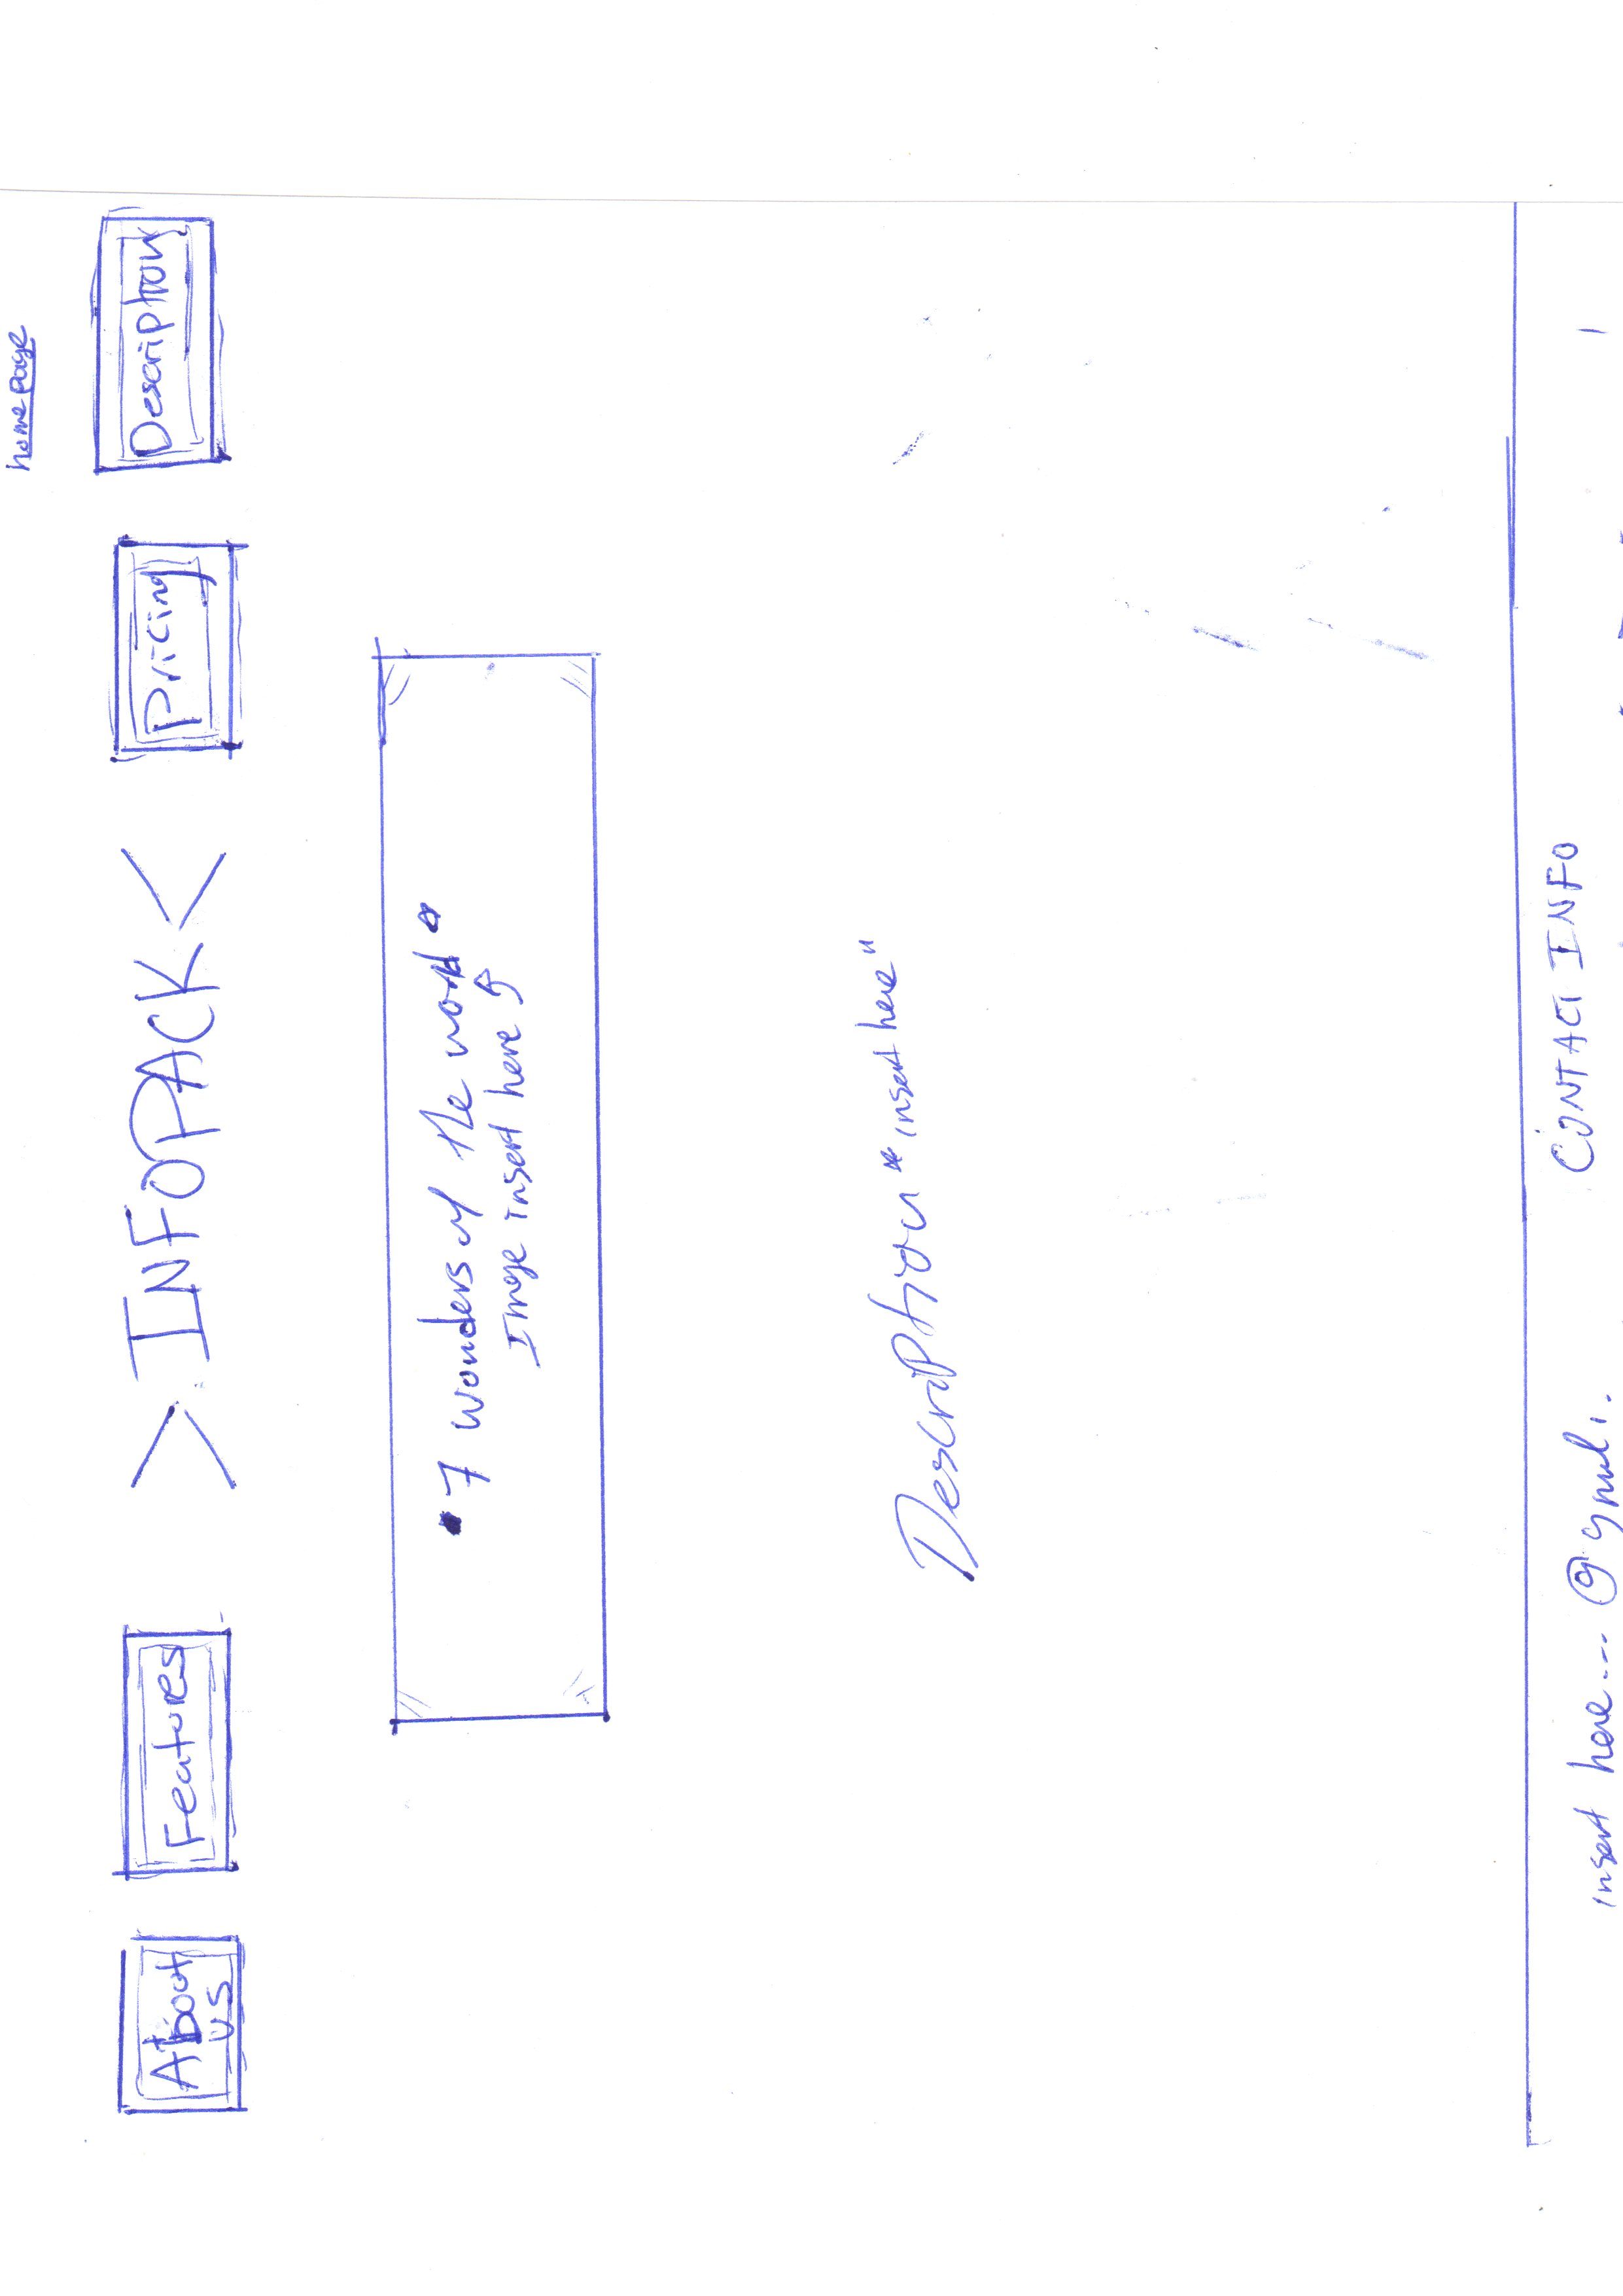 home page
About
us
Features
> INFOPACK <
Pricing
Description
"7 wonders of the world"
Image insert here
Description "insert here"
CONTACT INFO
insert here....